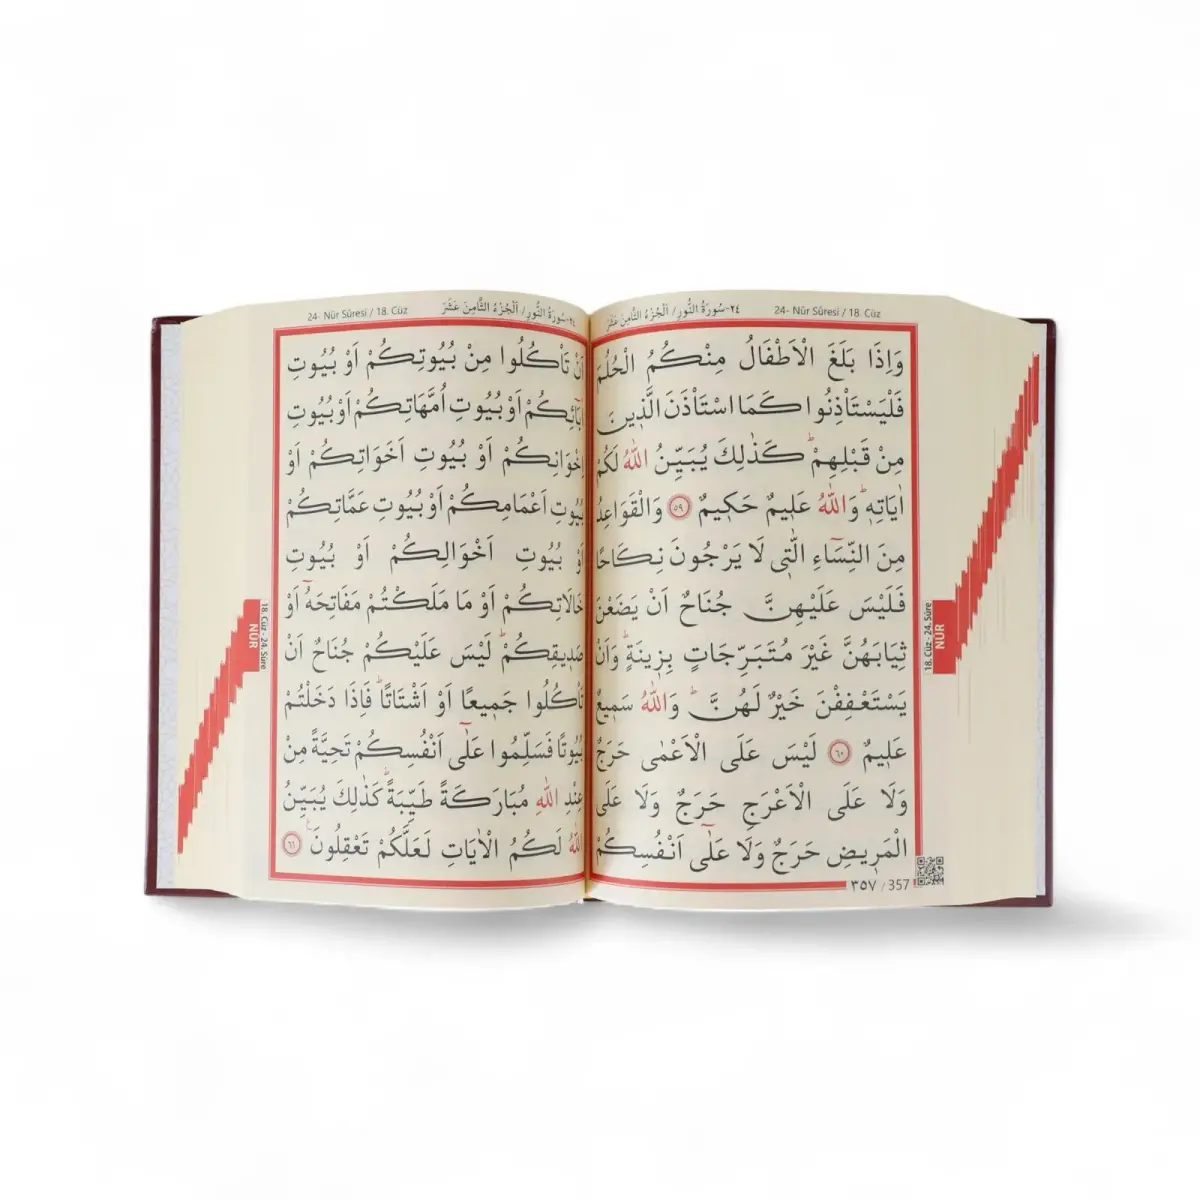 24- Nûr Sûresi / 18. Cüz
٢٤-سُورَةُ النُّورِ / اَلْجُزْءُ الثَّامِنَ عَشَرَ
وَاِذَا بَلَغَ الْاَطْفَالُ مِنْكُمُ الْحُلُمَ
فَلْيَسْتَأْذِنُوا كَمَا اسْتَأْذَنَ الَّذ۪ينَ
مِنْ قَبْلِهِمْۜ كَذٰلِكَ يُبَيِّنُ اللّٰهُ لَكُمْ
اٰيَاتِه۪ۜ وَاللّٰهُ عَل۪يمٌ حَك۪يمٌ ﴿٥٩﴾ وَالْقَوَاعِدُ
مِنَ النِّسَٓاءِ الّٰت۪ي لَا يَرْجُونَ نِكَاحًا
فَلَيْسَ عَلَيْهِنَّ جُنَاحٌ اَنْ يَضَعْنَ
ثِيَابَهُنَّ غَيْرَ مُتَبَرِّجَاتٍ بِز۪ينَةٍۜ وَاَنْ
يَسْتَعْفِفْنَ خَيْرٌ لَهُنَّۜ وَاللّٰهُ سَم۪يعٌ
عَل۪يمٌ ﴿٦٠﴾ لَيْسَ عَلَى الْاَعْمٰى حَرَجٌ
وَلَا عَلَى الْاَعْرَجِ حَرَجٌ وَلَا عَلَى
الْمَر۪يضِ حَرَجٌ وَلَا عَلٰٓى اَنْفُسِكُمْ
٣٥٧ / 357
18. Cüz - 24. Sûre
NÛR
24- Nûr Sûresi / 18. Cüz
٢٤-سُورَةُ النُّورِ / اَلْجُزْءُ الثَّامِنَ عَشَرَ
اَنْ تَأْكُلُوا مِنْ بُيُوتِكُمْ اَوْ بُيُوتِ
اٰبَٓائِكُمْ اَوْ بُيُوتِ اُمَّهَاتِكُمْ اَوْ بُيُوتِ
اِخْوَانِكُمْ اَوْ بُيُوتِ اَخَوَاتِكُمْ اَوْ
بُيُوتِ اَعْمَامِكُمْ اَوْ بُيُوتِ عَمَّاتِكُمْ
اَوْ بُيُوتِ اَخْوَالِكُمْ اَوْ بُيُوتِ
خَالَاتِكُمْ اَوْ مَا مَلَكْتُمْ مَفَاتِحَهُٓ اَوْ
صَد۪يقِكُمْۜ لَيْسَ عَلَيْكُمْ جُنَاحٌ اَنْ
تَأْكُلُوا جَم۪يعًا اَوْ اَشْتَاتًاۜ فَاِذَا دَخَلْتُمْ
بُيُوتًا فَسَلِّمُوا عَلٰٓى اَنْفُسِكُمْ تَحِيَّةً مِنْ
عِنْدِ اللّٰهِ مُبَارَكَةً طَيِّبَةًۜ كَذٰلِكَ يُبَيِّنُ
اللّٰهُ لَكُمُ الْاٰيَاتِ لَعَلَّكُمْ تَعْقِلُونَ۟ ﴿٦١﴾
18. Cüz - 24. Sûre
NÛR